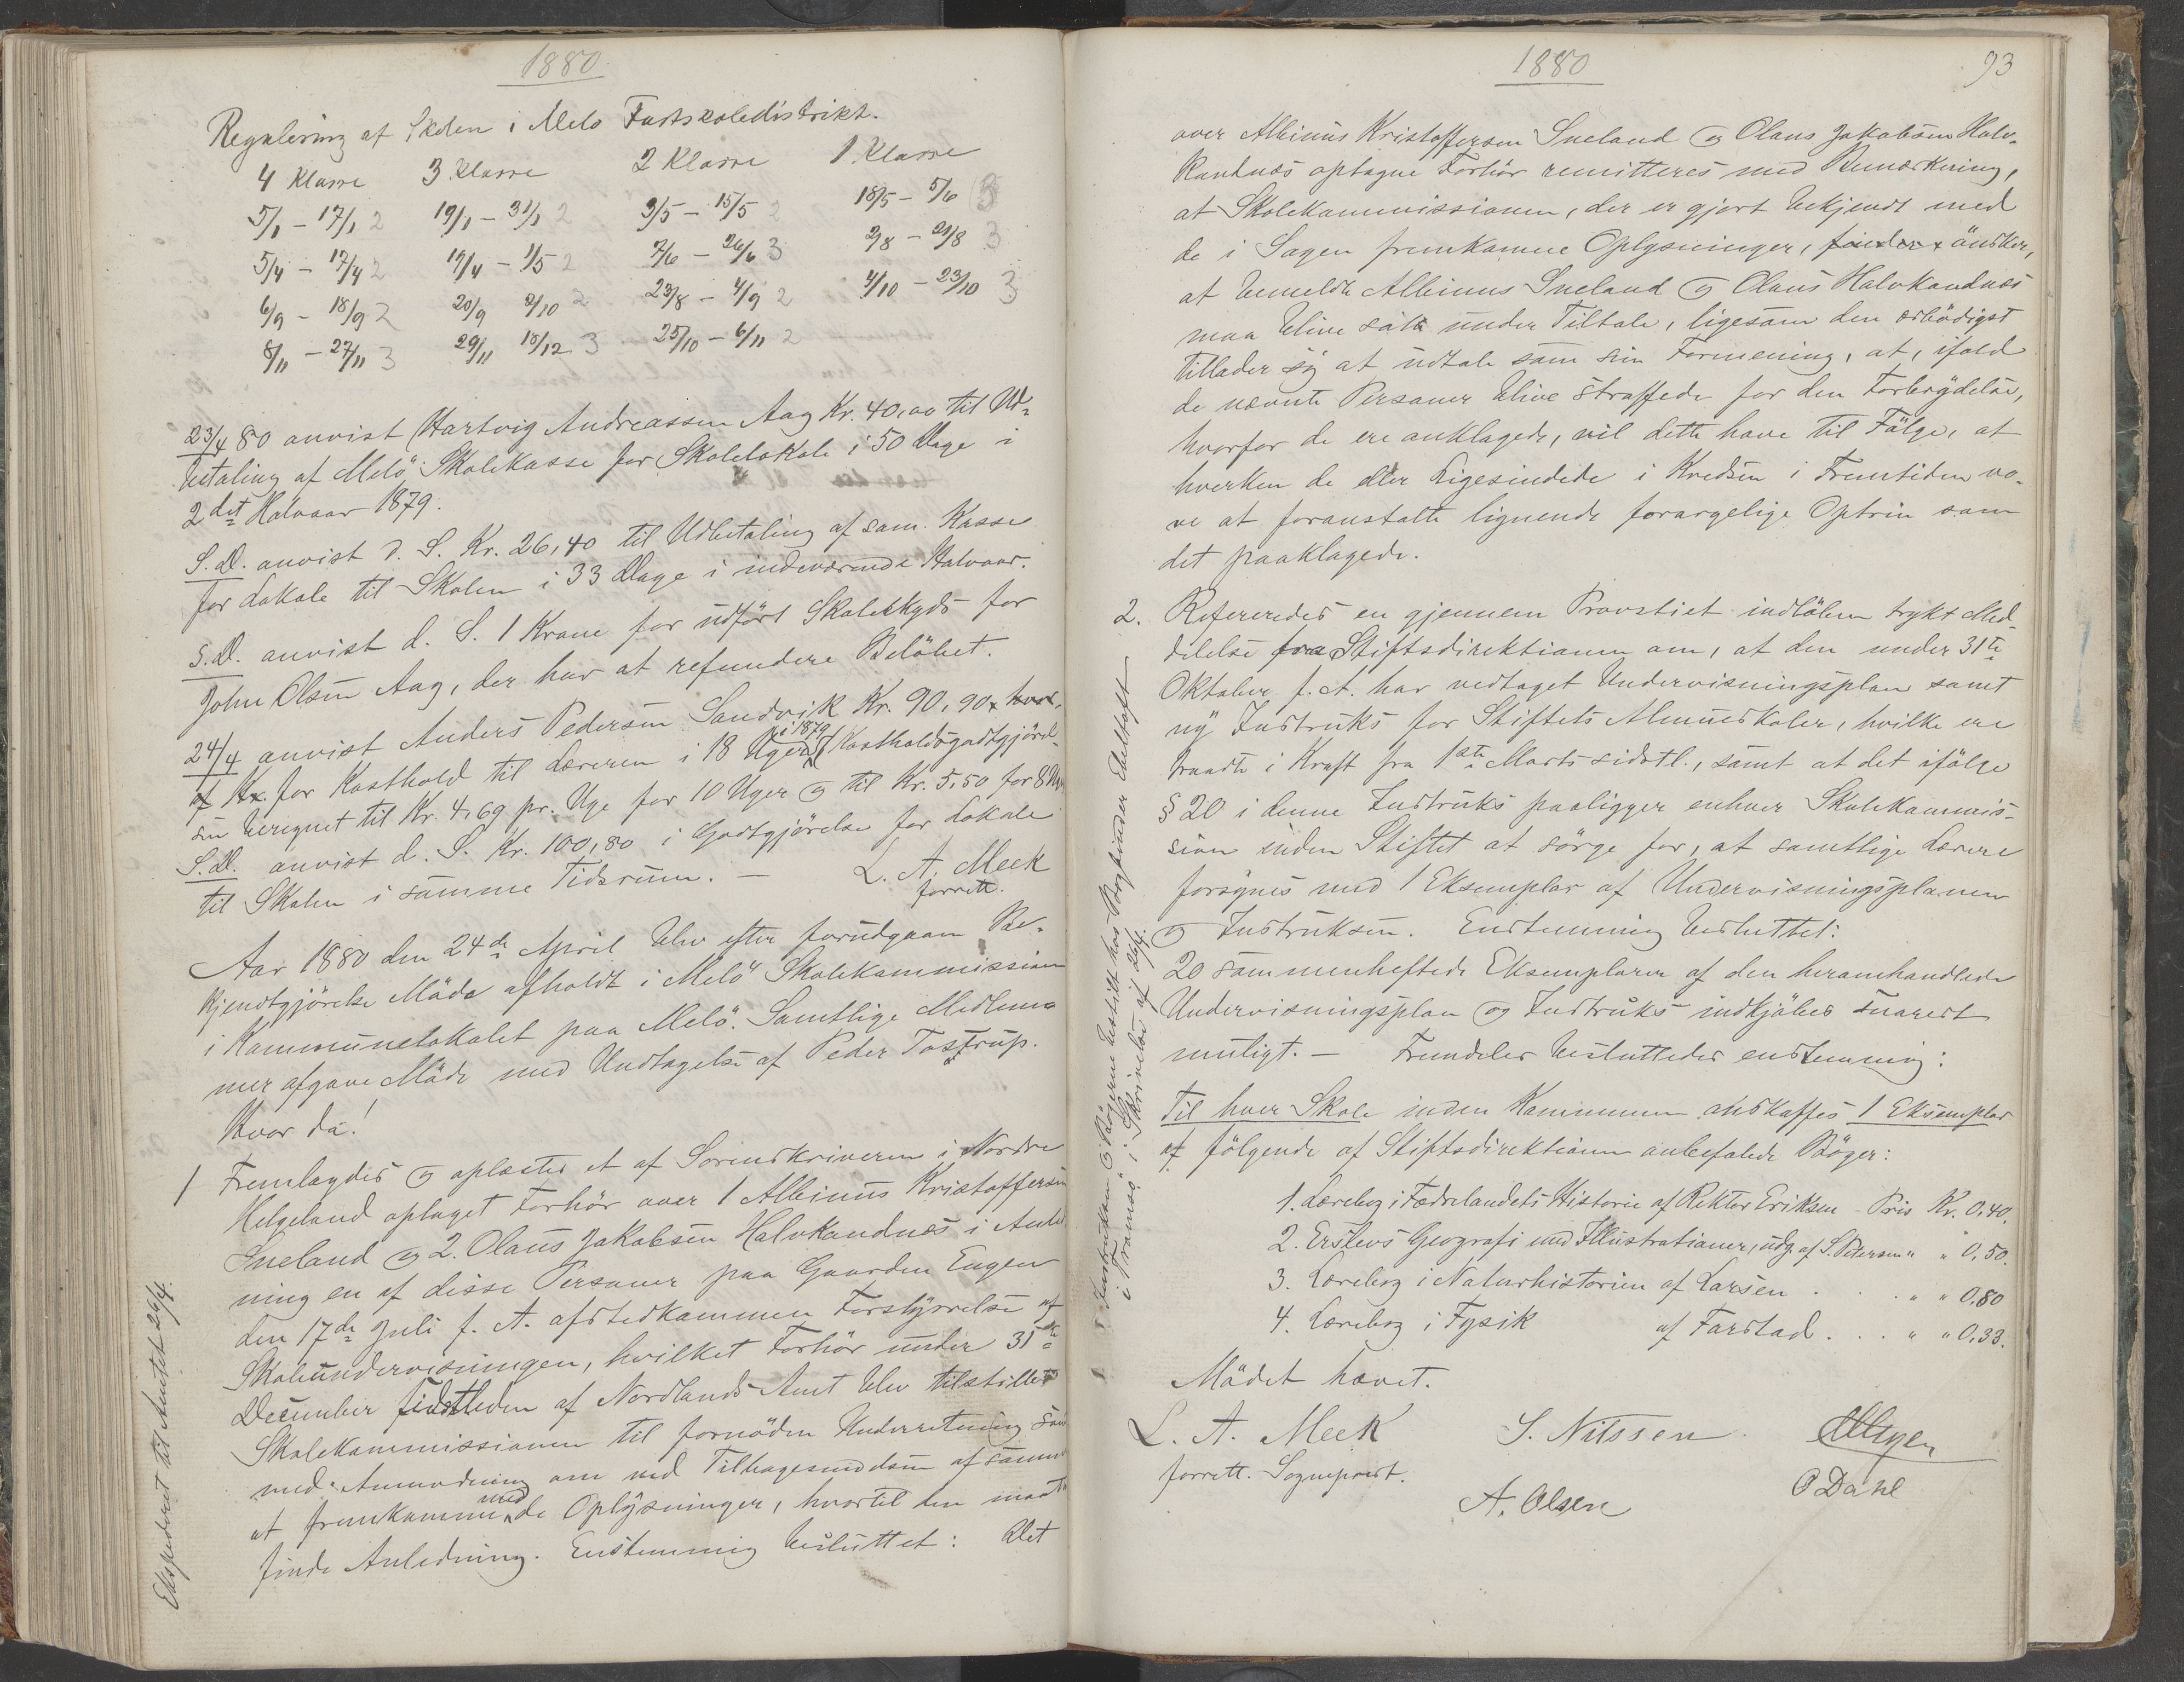 1880
Regulering af Skolen i Melö Fastskoledistrikt.
4 Klasse 3 Klasse 2 Klasse 1 Klasse
5/1 - 17/1 2 19/1 - 31/1 2 3/5 - 15/5 2 18/5 - 5/6 3
5/4 - 17/4 2 19/4 - 1/5 2 7/6 - 26/6 3 2/8 - 21/8 3
6/9 - 18/9 2 20/9 2/10 2 23/8 - 4/9 2 4/10 - 23/10 3
8/11 - 27/11 3 29/11 18/12 3 25/10 - 6/11 2
23/4 80 anvist Hartvig Andreassen Aag Kr. 40,00 til Ud-
betaling af Melö Skolekasse for Skolelokale i 50 Dage i
2det Halvaar 1879.
S.D. anvist d. S. Kr. 26,40 til Udbetaling af sam. Kasse
for Lokale til Skolen i 33 Dage i indeværende Halvaar.
S.D. anvist d. S. 1 Krone for udført Skoleskyds for
John Olsen Aag, der har at refundere Beløbet.
24/4 anvist Anders Pedersen Sandvik Kr. 90,90
for Kosthold til Læreren i 18 Uger i 1879 (Kostholdsgodtgjörel-
sen beregnet til Kr. 4,69 pr. Uge for 10 Uger og til Kr. 5,50 for 8
S.D. anvist d. S. Kr. 100,80 i Godtgjörelse for Lokale
til Skolen i samme Tidsrum. - L. A. Meek
forrett.
Aar 1880 den 24de April blev efter forudgaaen Be-
kjendtgjörelse Möde afholdt i Melö Skolekommission
i Kommunelokalet paa Melö. Samtlige Medlem-
mer afgave Möde med Undtagelse af Peder Tostrup.
Hvor da!
1 Fremlagdes og oplæstes et af Sorenskriveren i Nordre
Helgeland optaget Forhör over 1 Albinus Kristoffersen
Sneland og 2. Olaus Jakobsen Halvkandnæs i Anled
ning en af disse Personer paa Gaarden Engen
den 17de Juli f. A. afstedkommen Forstyrrelse af
Skoleundervisningen, hvilket Forhör under 31te
December sidstleden af Nordlands Amt blev tilstillet
Skolekommissionen til fornöden Underretning samt
med Anmodning om ved Tilbagesendelsen af samme
at fremkomme med de Oplysninger, hvortil den maatte
finde Anledning. Enstemmig besluttet: Det
Ekspederet til Amtet 26/4.
1880
93
over Albinus Kristoffersen Sneland og Olaus Jakobsen Halv-
kandnæs optagne Forhör remitteres med Bemærkning,
at Skolekommissionen, der er gjort bekjendt med
de i Sagen fremkomne Oplysninger, finder önsker,
at bemeldte Albinus Sneland og Olaus Halvkandnæs
maa blive satte under Tiltale, ligesom den ærbödigst
tillader sig at udtale som sin Formening, at, ifald
de nævnte Personer blive straffede for den Forbrydelse,
hvorfor de ere anklagede, vil dette have til Fölge, at
hverken de eller Ligesindede i Kredsen i Fremtiden vo-
ve at foranstalte lignende forargelige Optrin som
det paaklagede.
2. Refereredes en gjennem Provstiet indlöben trykt Med-
delelse fra Stiftsdirektionen om, at den under 31te
Oktober f. A. har vedtaget Undervisningsplan samt
ny Instruks for Stiftets Almueskoler, hvilke ere
traadte i Kraft fra 1ste Marts sidstl., samt at det ifölge
§ 20 i denne Instruks paaligger enhver Skolekommis-
sion inden Stiftet at sörge for, at samtlige Lærere
forsynes med 1 Eksemplar af Undervisningsplanen
og Instruksen. Enstemmig besluttet:
20 sammenheftede Eksemplarer af den heromhandlede
Undervisningsplan og Instruks indkjöbes snarest
muligt. - Fremdeles besluttedes enstemmig:
Til hver Skole inden Kommunen anskaffes 1 Eksemplar
af fölgende af Stiftsdirektionen anbefalede Böger:
1. Lærebog i Fædrelandets Historie af Rektor Eriksen - Pris Kr. 0,40.
2. Erslevs Geografi med Illustrationer, udg. af S. Petersen " " 0,50.
3. Lærebog i Naturhistorien af Larsen . . . " " 0,80
4. Lærebog i Fysik af Farstad . . . " " 0,33.
Mödet hævet.
L. A. Meek S. Nilssen
forrett. Sogneprest.
A. Olsen P Dahl
Instruksen og Bögerne bestilt hos Bogbinder Ebeltoft
i Tromsö i Skrivelse af 26/4.